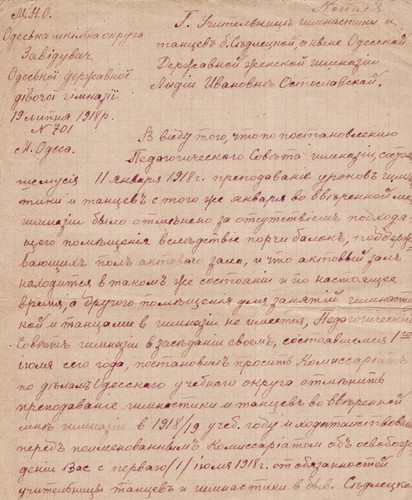 М.Н.О.
Одеська шкільна округа
Завідувач
Одеської державної
дівочої гімназії
19 липня 1918 р.
№ 701
м. Одеса.
Копія
Г. Учительницѣ гимнастики и
танцевъ б. Сѣдлецкой, а нынѣ Одесской
Державной женской гимназии
Лидіи Ивановнѣ Остославской.
В виду того, что по постановлению
Педагогического Совѣта гимназіи, состояв
шемуся 11 января 1918 г. преподаваніе уроковъ гимнас
тики и танцевъ с того же января во ввѣренной мнѣ
гимназіи было отмѣнено за отсутствіемъ подходя
щего помѣщенія вслѣдствіе порчи балок, поддержи
вающих полъ актового зала, и что актовый залъ
находится в таком же состояніи и по настоящее
время, а другого помѣщенія для занятій гимнасти
кой и танцами в гимназіи не имеется, Педагогический
Совѣтъ гимназіи в засѣданіи своем, состоявшемся 1го
июля сего года, постановилъ просить Комиссариатъ
по дѣламъ Одесского учебного округа отмѣнить
преподаваніе гимнастики и танцевъ во ввѣренной
мнѣ гимназіи в 1918/19 учеб. году и ходатайствовать
передъ поименованнымъ Комиссаріатом об освобож
деніи Вас с первого /1/ июля 1918 г. от обязанностей
учительницы танцевъ и гимнастики в быв. Сѣдлецкой